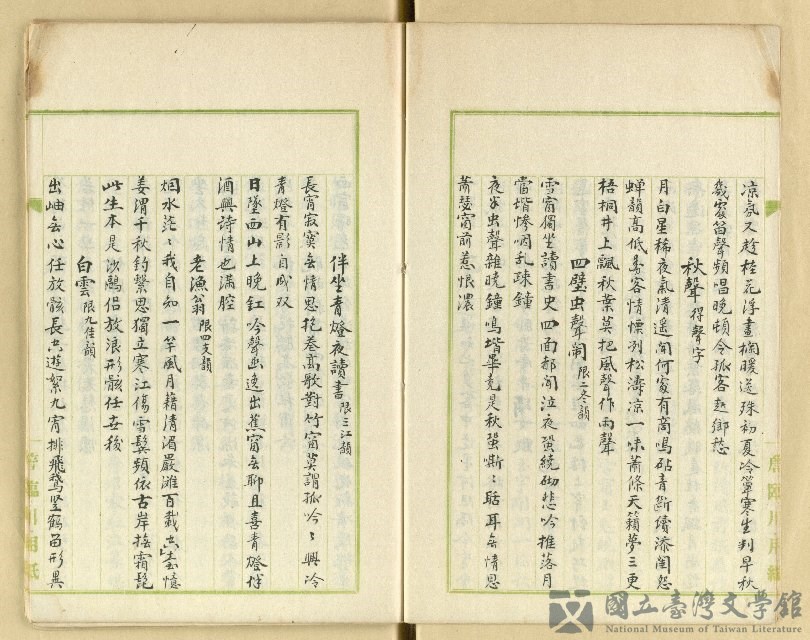 凉氛又趁桂花浮畫欄暖送殊初夏冷簟寒生判早秋
幾家笛聲頻唱晚頓令孤客起鄉愁
秋聲 得聲字
月白星稀夜氣清遙聞何家有高鳴砧音斷續添閨怨
蟬韻高低秀客情慄冽松濤凉一味蕭條天籟夢三更
梧桐井上飄秋葉莫把風聲作雨聲
四壁虫聲鬧 限二冬韻
雪窗獨坐讀書史四面都聞泣夜蛩繞砌悲吟推落月
當堦慘咽乱疎鐘
夜半虫聲雜晚鐘鳴堦畢竟是秋蛩嘶〻聒耳無情思
蕭瑟窗前惹恨濃
伴坐青燈夜讀書 限三江韻
長宵寂寞無情思抱卷高歌對竹窗莫謂孤吟〻興冷
青燈有影自成双
日墜西山上晚釭吟聲幽逸出蕉窗無聊且喜青燈伴
酒興詩情也滿腔
老漁翁 限四支韻
烟水茫〻我自知一竿風月藉清湄嚴灘百載去憶
姜渭千秋釣繫思獨立寒江傷雪鬢頻依古岸捻霜髭
此生本是沙鷗侶放浪形骸任無羈
白雲 限九佳韻
出岫無心任放骸長共遊絮九霄排飛鸞望鶴留形異
許臨川用紙
許臨川用紙
國立臺灣文學館
National Museum of Taiwan Literature